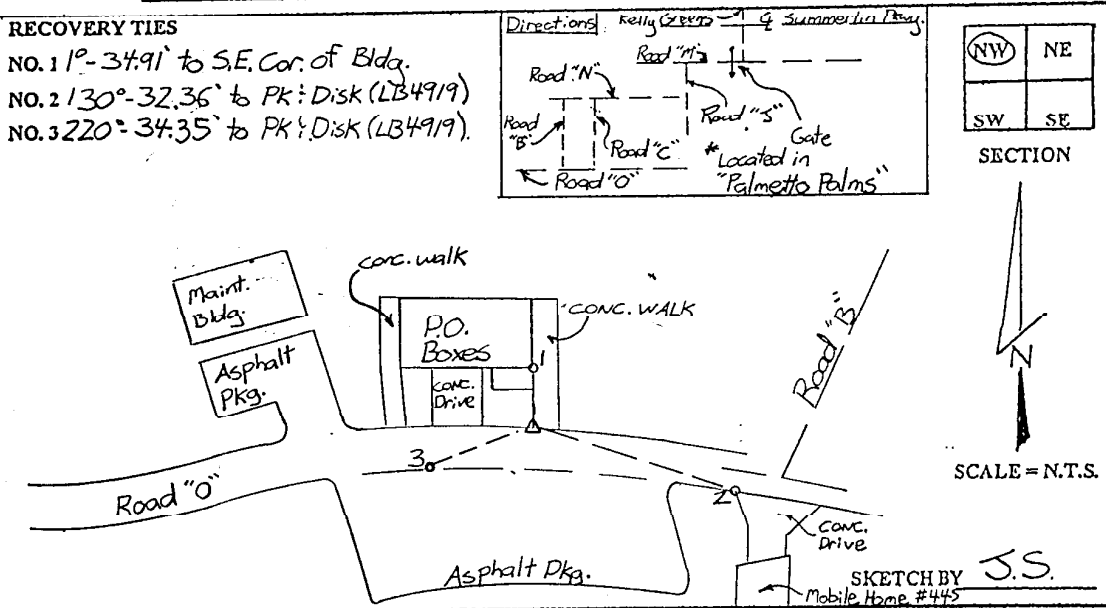 RECOVERY TIES
NO. 1 1°-34.91' to S.E. Cor. of Bldg.
NO. 2 130°-32.36' to PK & Disk (LB4919)
NO. 3 220°-34.35' to PK & Disk (LB4919).
Directions Kelly Greens ℄ Summerlin Pkwy.
Road "M"
Road "N"
Road "B"
Road "C"
Road "S"
Gate
Road "O"
*Located in
"Palmetto Palms"
NW NE
SW SE
SECTION
conc. walk
Maint.
Bldg.
P.O.
Boxes
CONC. WALK
1
Asphalt
Pkg.
CONC.
Drive
Road "B"
N
3
2
SCALE = N.T.S.
Road "O"
Conc.
Drive
Asphalt Pkg.
SKETCH BY J.S.
Mobile Home #445